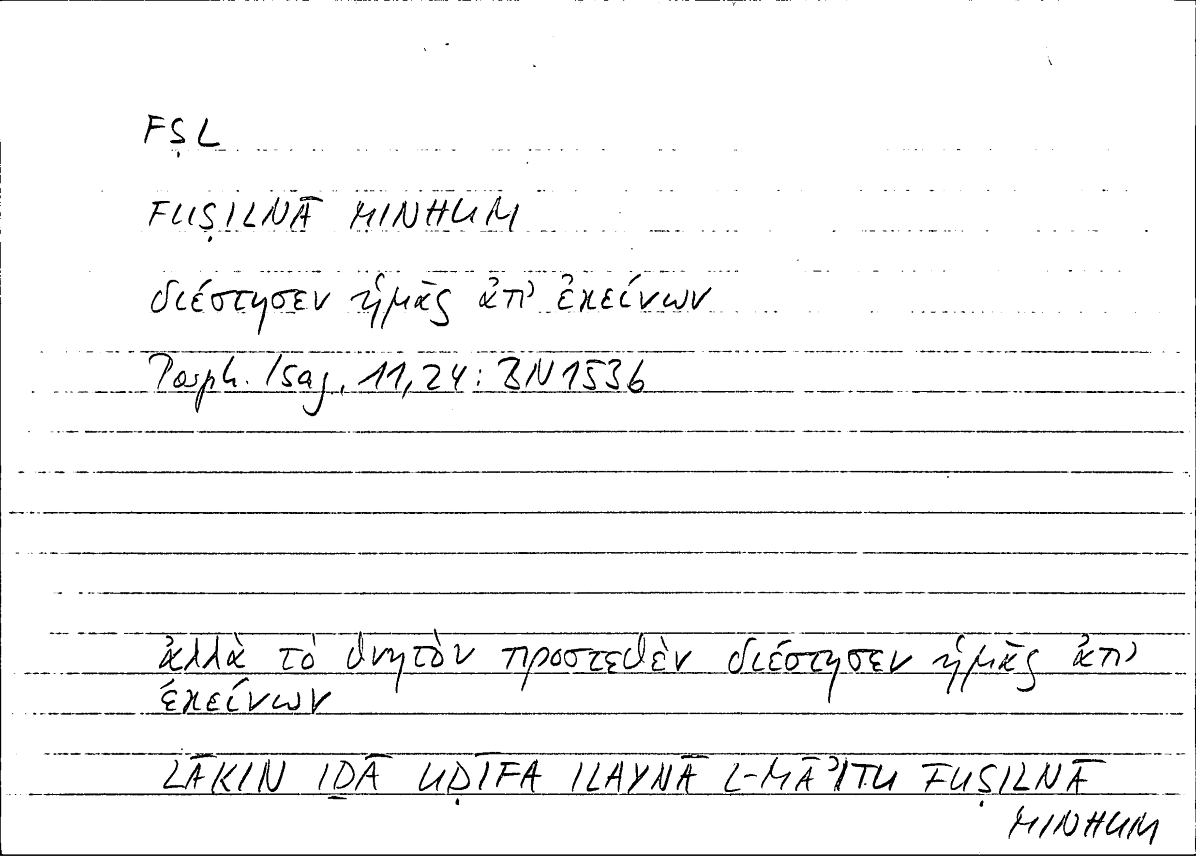 FṢL
FUṢILNĀ MINHUM
διέστησεν ἡμᾶς ἀπ' ἐκείνων
Porph. Isag. 11,24: BN1536
ἀλλὰ τὸ θνητὸν προστεθὲν διέστησεν ἡμᾶς ἀπ'
ἐκείνων
LĀKIN IḎĀ UḌĪFA ILAYNĀ L-MĀʾITU FUṢILNĀ
MINHUM